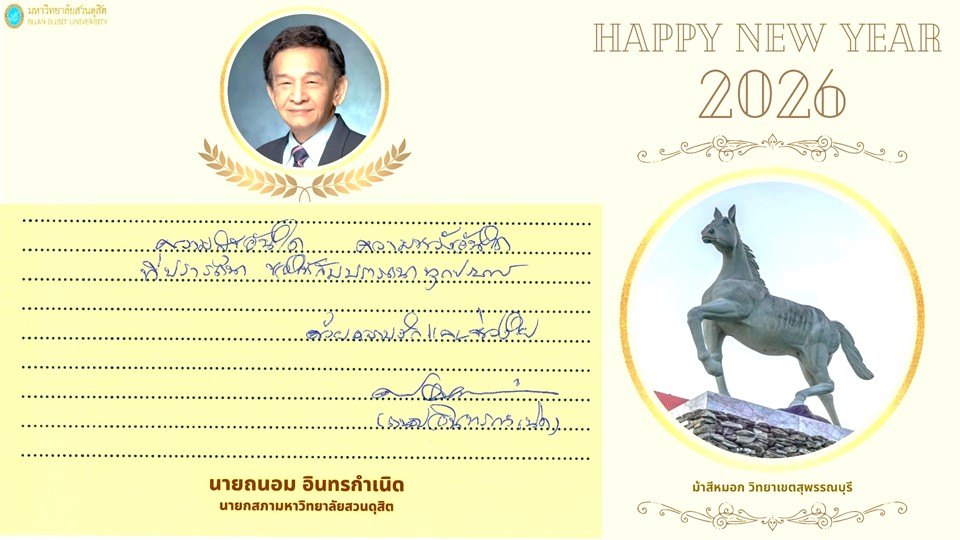 มหาวิทยาลัยสวนดุสิต
SUAN DUSIT UNIVERSITY
HAPPY NEW YEAR
2026
ความสุขอันใด ความหวังอันใด
ที่ปรารถนา ขอให้สมปรารถนาทุกประการ
ด้วยความรักและห่วงใย
นายถนอม อินทรกำเนิด
นายกสภามหาวิทยาลัยสวนดุสิต
ม้าสีหมอก วิทยาเขตสุพรรณบุรี